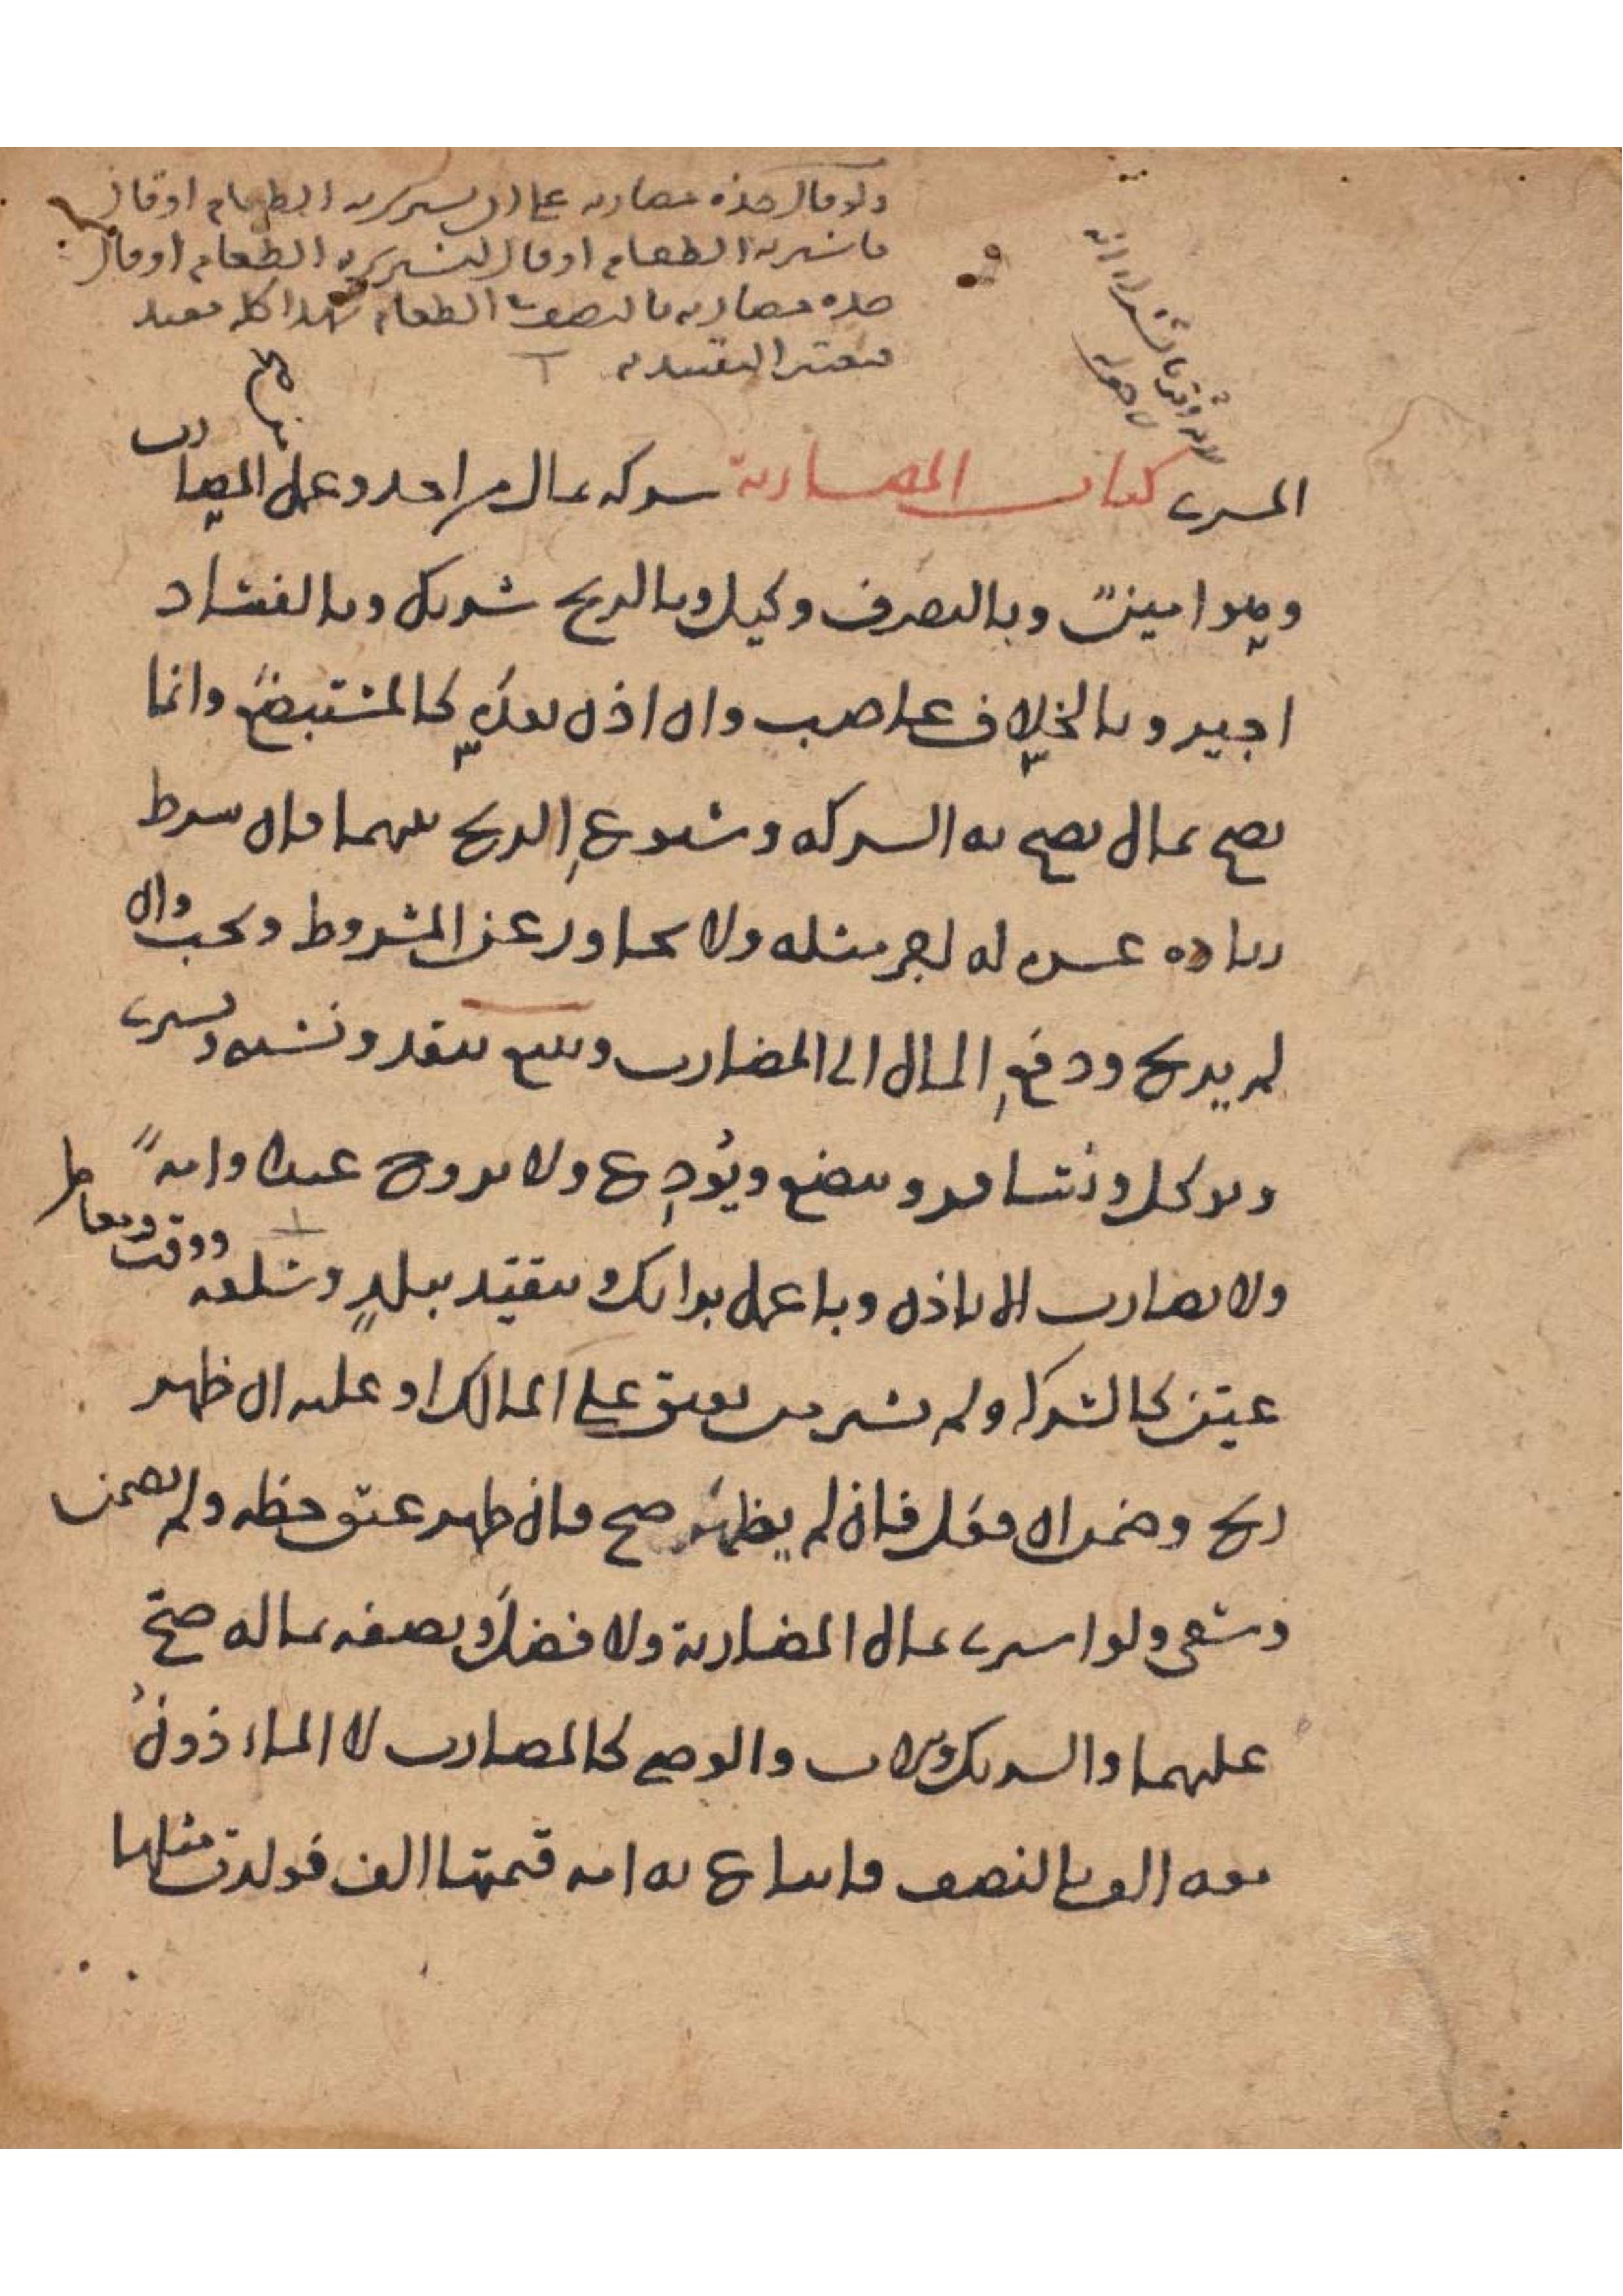 ولو قال خذه مضاربه على ان يشترى به الطعام او قال
فاشتر به الطعام او قال لتشترى به الطعام او قال
خذه مضاربه بالنصف فى الطعام فهذا كله مقيد
فيعتبر التقييد به
المشترى كتاب المضاربة شركه بمال من احد وعمل المضارب
وهو امين وبالتصرف وكيل وبالربح شريك وبالفساد
اجير وبالخلاف غاصب وان اذن بعدُ كالمستبضع وانما
يصح بمال يصح به الشركه وشيوع الربح بينهما فان شرط
زياده عشره له اجر مثله ولا يجاوز عن المشروط ويجب وان
لم يربح ودفع المال الى المضارب ويبيع بنقد ونسيه ويشترى
ويوكل ويسافر ويبضع ويُودِع ولا يزوج عبدا وامةً
ولا يضارب الا باذن وباعمل برايك ويتقيد ببلدٍ وسلعه ووقت ومعامل
عيّن كالشركه ولم يشتر من يعتق على المالك او عليه ان ظهر
ربح وضمن ان فعل فان لم يظهر صح فان ظهر عتق حظه ولم يضمن
وسعى ولو اشترى بمال المضاربة ولا فضل ونصفه بماله صحّ
عليهما والشريك والاب والوصي كالمضارب لا الماذون
معه الف بالنصف فابتاع به امه قيمتها الف فولدت مثلها